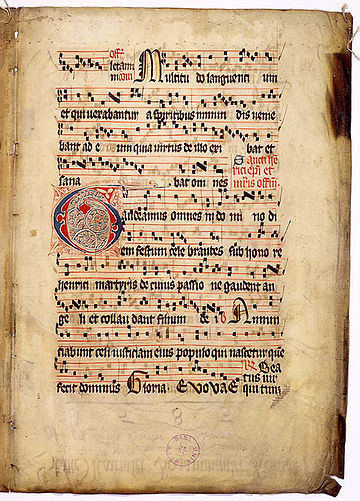 Multitudo languenti um
et qui vexabantur a spiritibus inmun dis venie
bant ad e um quia virtus de illo exi bat et
sana bat om nes
Gaudeamus omnes in do mi no di
em festum cele brantes sub hono re
henrici martyris de cuius passio ne gaudent an
ge li et collau dant filium de i Annun
ciabunt celi iusticiam eius populo qui nascetur que
Bea
fecit dominus Gloria EVOVAE tus vir
qui tim